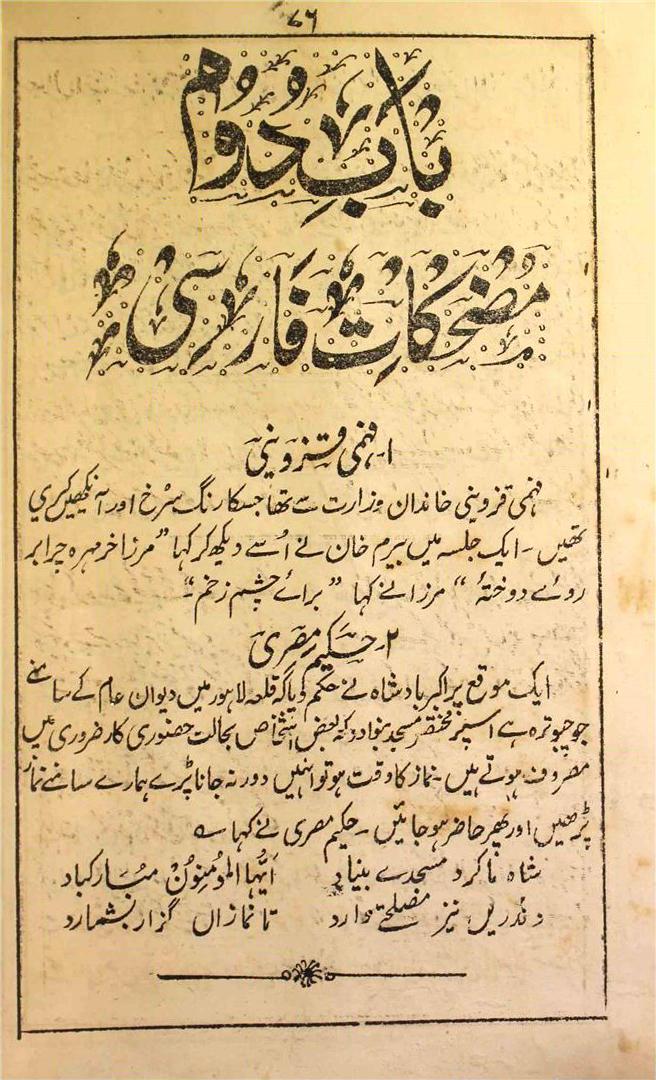 ۷۶
باب دوم
مضحکات فارسی
۱۔ فہمی قزوینی
فہمی قزوینی خاندان وزارت سے تھا جسکا رنگ سرخ اور آنکھیں کیری
تھیں۔ ایک جلسہ میں بیرم خان نے اُسے دیکھ کر کہا "مرزا خرمہرہ چرا بر
روئے دوختۂ" مرزا نے کہا "برائے چشم زخم"۔
۲۔ حکیم مصری
ایک موقع پر اکبر بادشاہ نے حکم دیا کہ قلعہ لاہور میں دیوان عام کے سامنے
جو چبوترہ ہے اسپر مختصر مسجد بنوا دو کہ بعض اشخاص بحالت حضوری کار ضروری میں
مصروف ہوتے ہیں۔ نماز کا وقت ہو تو انہیں دور نہ جانا پڑے ہمارے سامنے نماز
پڑھیں اور پھر حاضر ہو جائیں۔ حکیم مصری نے کہا ؎
شاہ ما کرد مسجدے بنیاد ایہا المومنون مبارکباد
وندریں نیز مصلحتے دارد تا نمازاں گزار بشمارد